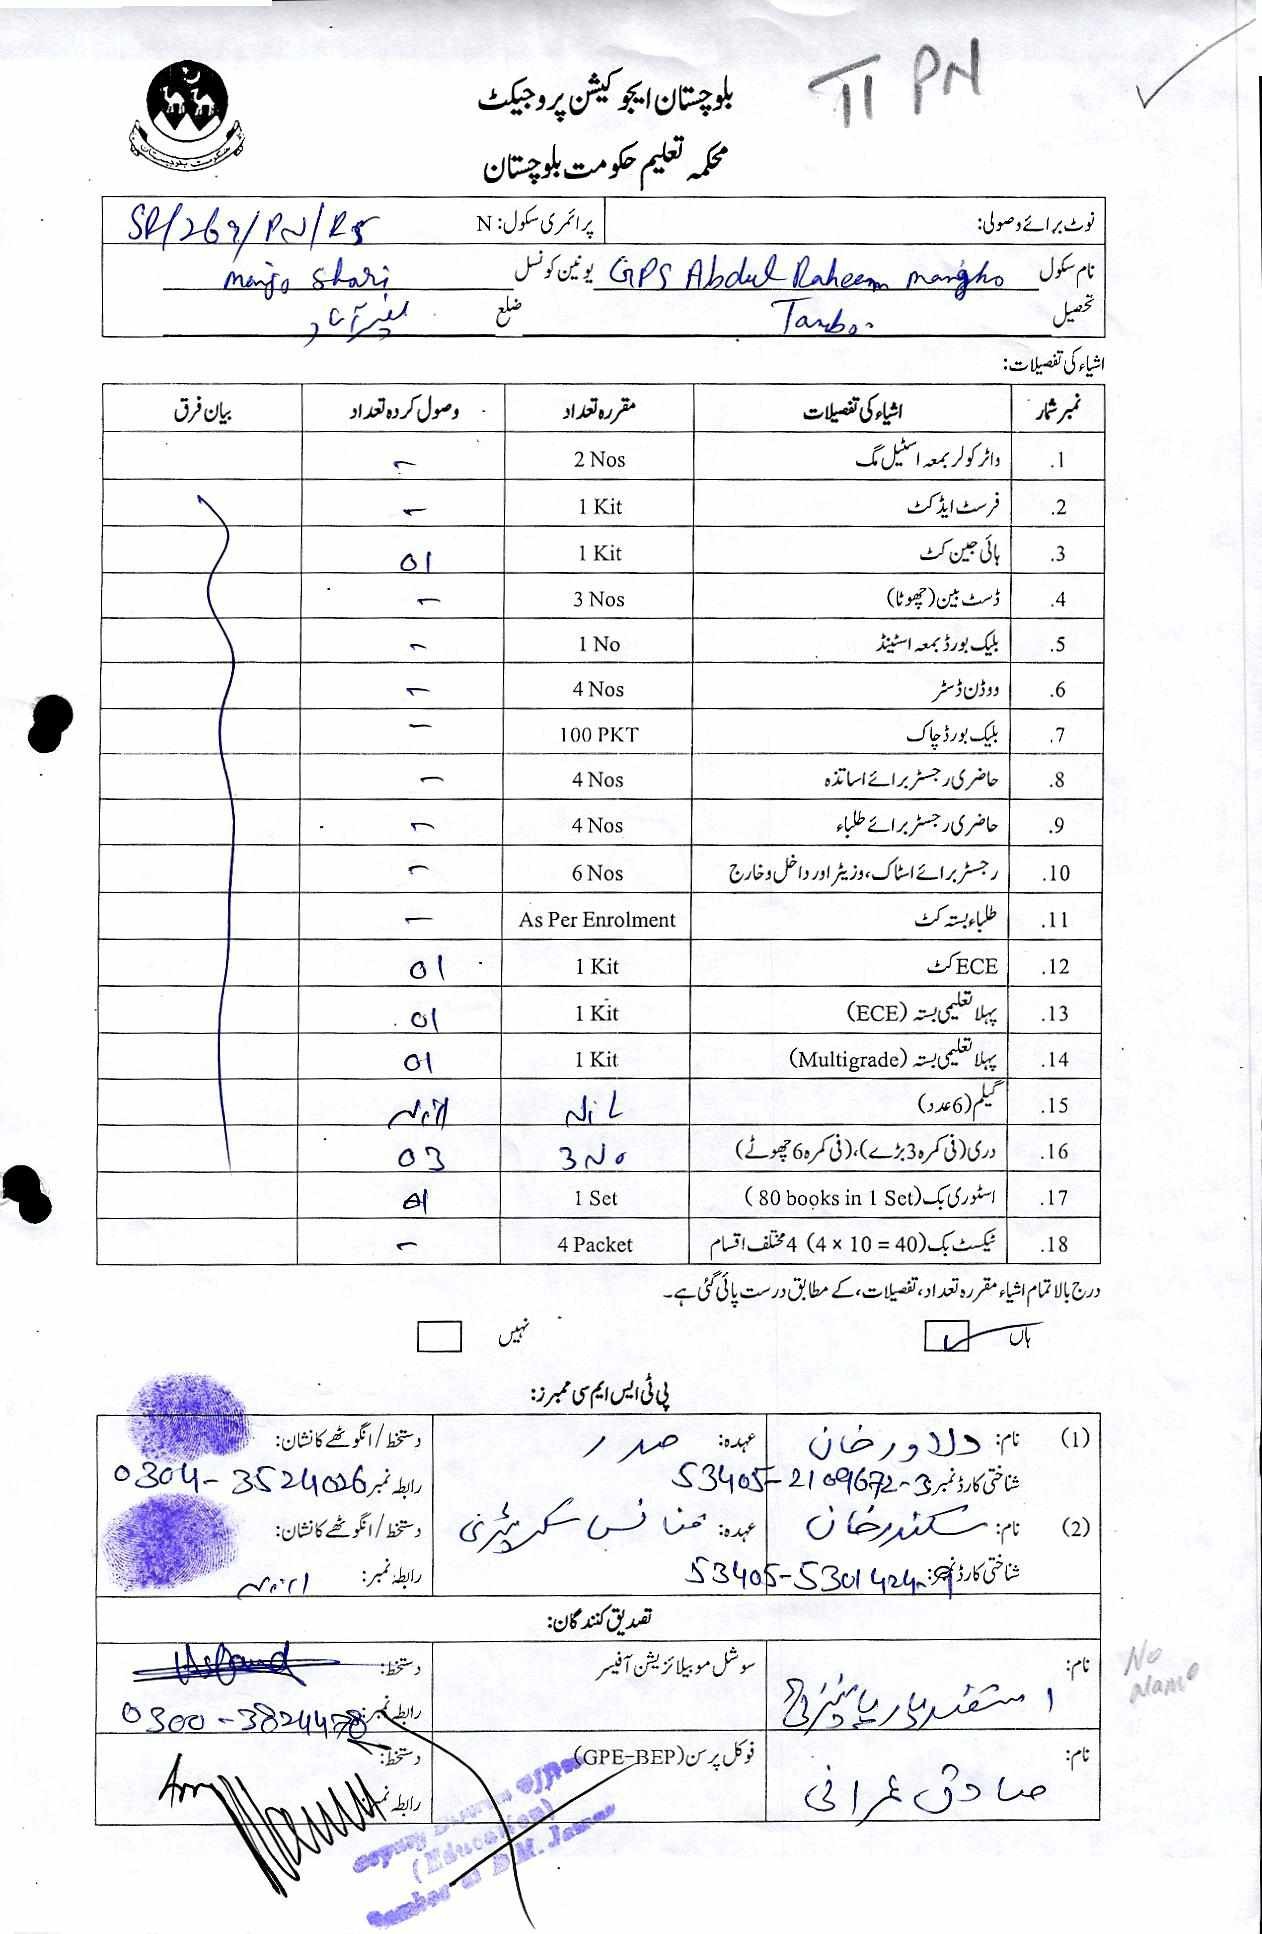 TI PN
بلوچستان ایجوکیشن پروجیکٹ
محکمہ تعلیم حکومت بلوچستان
نوٹ برائے وصولی: پرائمری سکول: N SP/269/PN/R5
نام سکول GPS Abdul Raheem mangho یونین کونسل manjo Shari
تحصیل Tamboo ضلع نصیرآباد
اشیاء کی تفصیلات:
نمبر شمار اشیاء کی تفصیلات مقررہ تعداد وصول کردہ تعداد بیان فرق
1. واٹر کولر بمعہ اسٹیل مگ 2 Nos -
2. فرسٹ ایڈ کٹ 1 Kit -
3. ہائی جین کٹ 1 Kit 01
4. ڈسٹ بین (چھوٹا) 3 Nos -
5. بلیک بورڈ بمعہ اسٹینڈ 1 No -
6. ووڈن ڈسٹر 4 Nos -
7. بلیک بورڈ چاک 100 PKT -
8. حاضری رجسٹر برائے اساتذہ 4 Nos -
9. حاضری رجسٹر برائے طلباء 4 Nos -
10. رجسٹر برائے اسٹاک، وزیٹر اور داخل و خارج 6 Nos -
11. طلباء بستہ کٹ As Per Enrolment -
12. ECE کٹ 1 Kit 01
13. پہلا تعلیمی بستہ (ECE) 1 Kit 01
14. پہلا تعلیمی بستہ (Multigrade) 1 Kit 01
15. گیلم (6 عدد) NiL Nill
16. دری (فی کمرہ 3 بڑے)، (فی کمرہ 6 چھوٹے) 3 No 03
17. اسٹوری بک (80 books in 1 Set) 1 Set 01
18. ٹیکسٹ بک (4 × 10 = 40) 4 مختلف اقسام 4 Packet -
درج بالا تمام اشیاء مقررہ تعداد، تفصیلات، کے مطابق درست پائی گئی ہے۔
ہاں نہیں
پی ٹی ایس ایم سی ممبرز:
(1) نام: دلاور خان عہدہ: صدر دستخط / انگوٹھے کا نشان:
شناختی کارڈ نمبر 53405-2109672-3 رابطہ نمبر 0304-3524026
(2) نام: سکندر خان عہدہ: فنانس سکریٹری دستخط / انگوٹھے کا نشان:
شناختی کارڈ نمبر: 53405-5301424-9 رابطہ نمبر: Nill
تصدیق کنندگان:
نام: اسفندیار سوشل موبیلائزیشن آفیسر دستخط:
رابطہ نمبر: 0300-3824478
No Name
نام: صادق عمرانی فوکل پرسن (GPE-BEP) دستخط:
رابطہ نمبر
Deputy District Officer
(Education)
D.M. Jamali